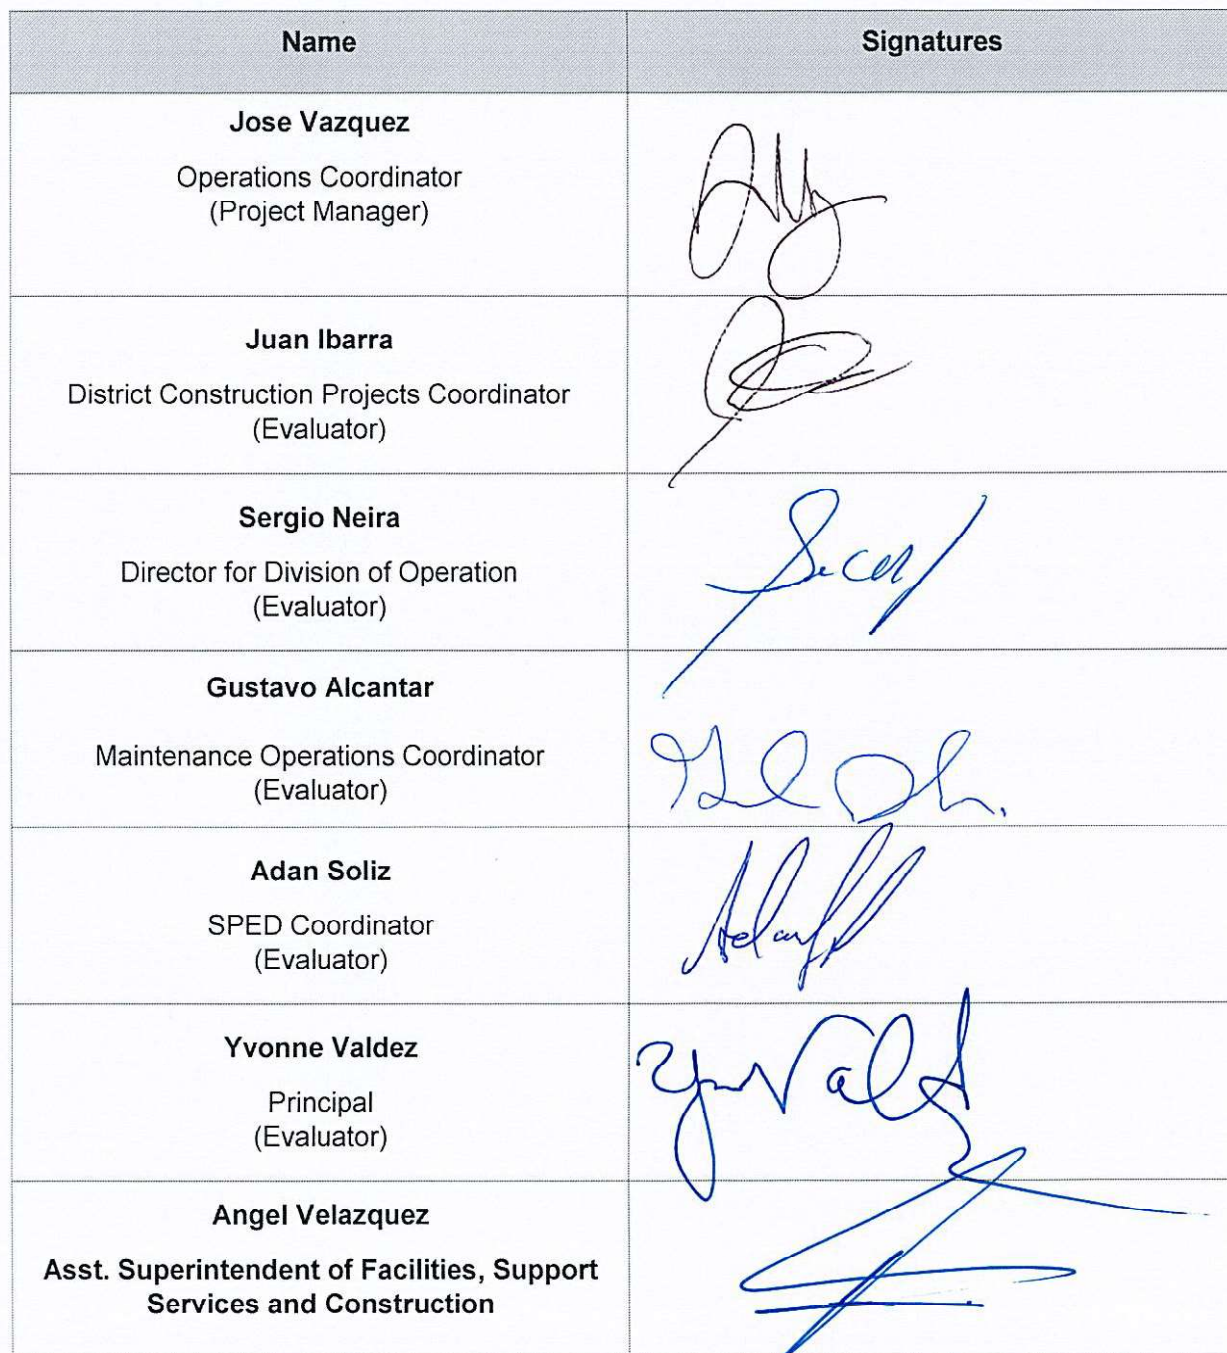 Name
Signatures
Jose Vazquez
Operations Coordinator
(Project Manager)
Juan Ibarra
District Construction Projects Coordinator
(Evaluator)
Sergio Neira
Director for Division of Operation
(Evaluator)
Gustavo Alcantar
Maintenance Operations Coordinator
(Evaluator)
Adan Soliz
SPED Coordinator
(Evaluator)
Yvonne Valdez
Principal
(Evaluator)
Angel Velazquez
Asst. Superintendent of Facilities, Support
Services and Construction